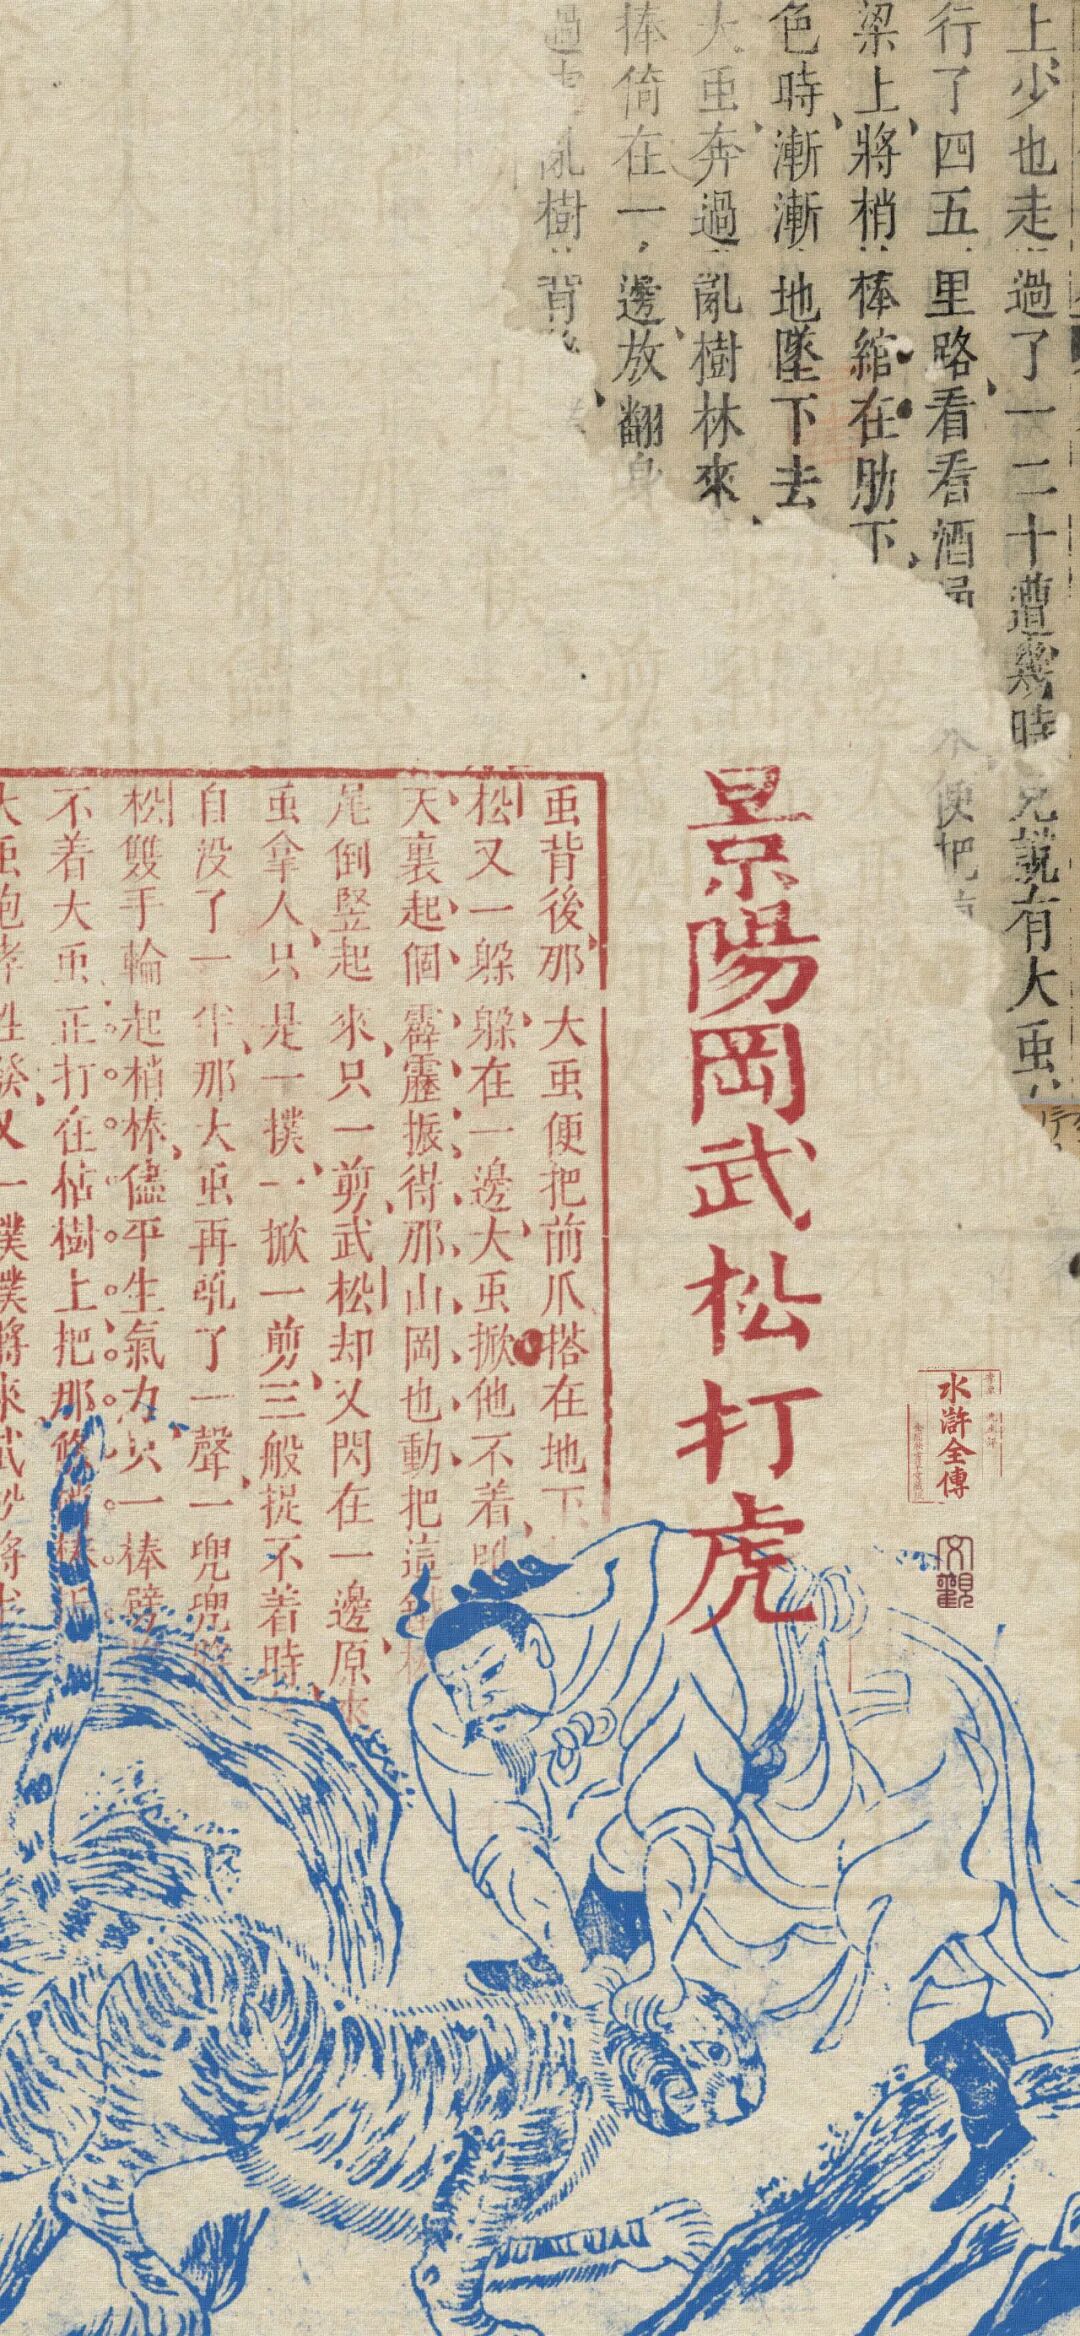 上少也走過了一二十遭幾時見說有大虫
行了四五里路看看酒
梁上將梢棒綰在肋下
色時漸漸地墜下去
大虫奔過亂樹林來
捧倚在一邊放翻身
過亂樹背
便把
景陽岡武松打虎
水滸全傳
文觀
虫背後那大虫便把前爪搭在地下
松又一躲躲在一邊大虫掀他不着
天裏起個霹靂振得那山岡也動把這
尾倒豎起來只一剪武松却又閃在一邊原來
虫拿人只是一撲一掀一剪三般捉不着時
自没了一半那大虫再吼了一聲一兜兜
松雙手輪起梢棒儘平生氣力只一棒劈
不着大虫正打在枯樹上把那
大虫咆哮性發又一撲撲將來武松將